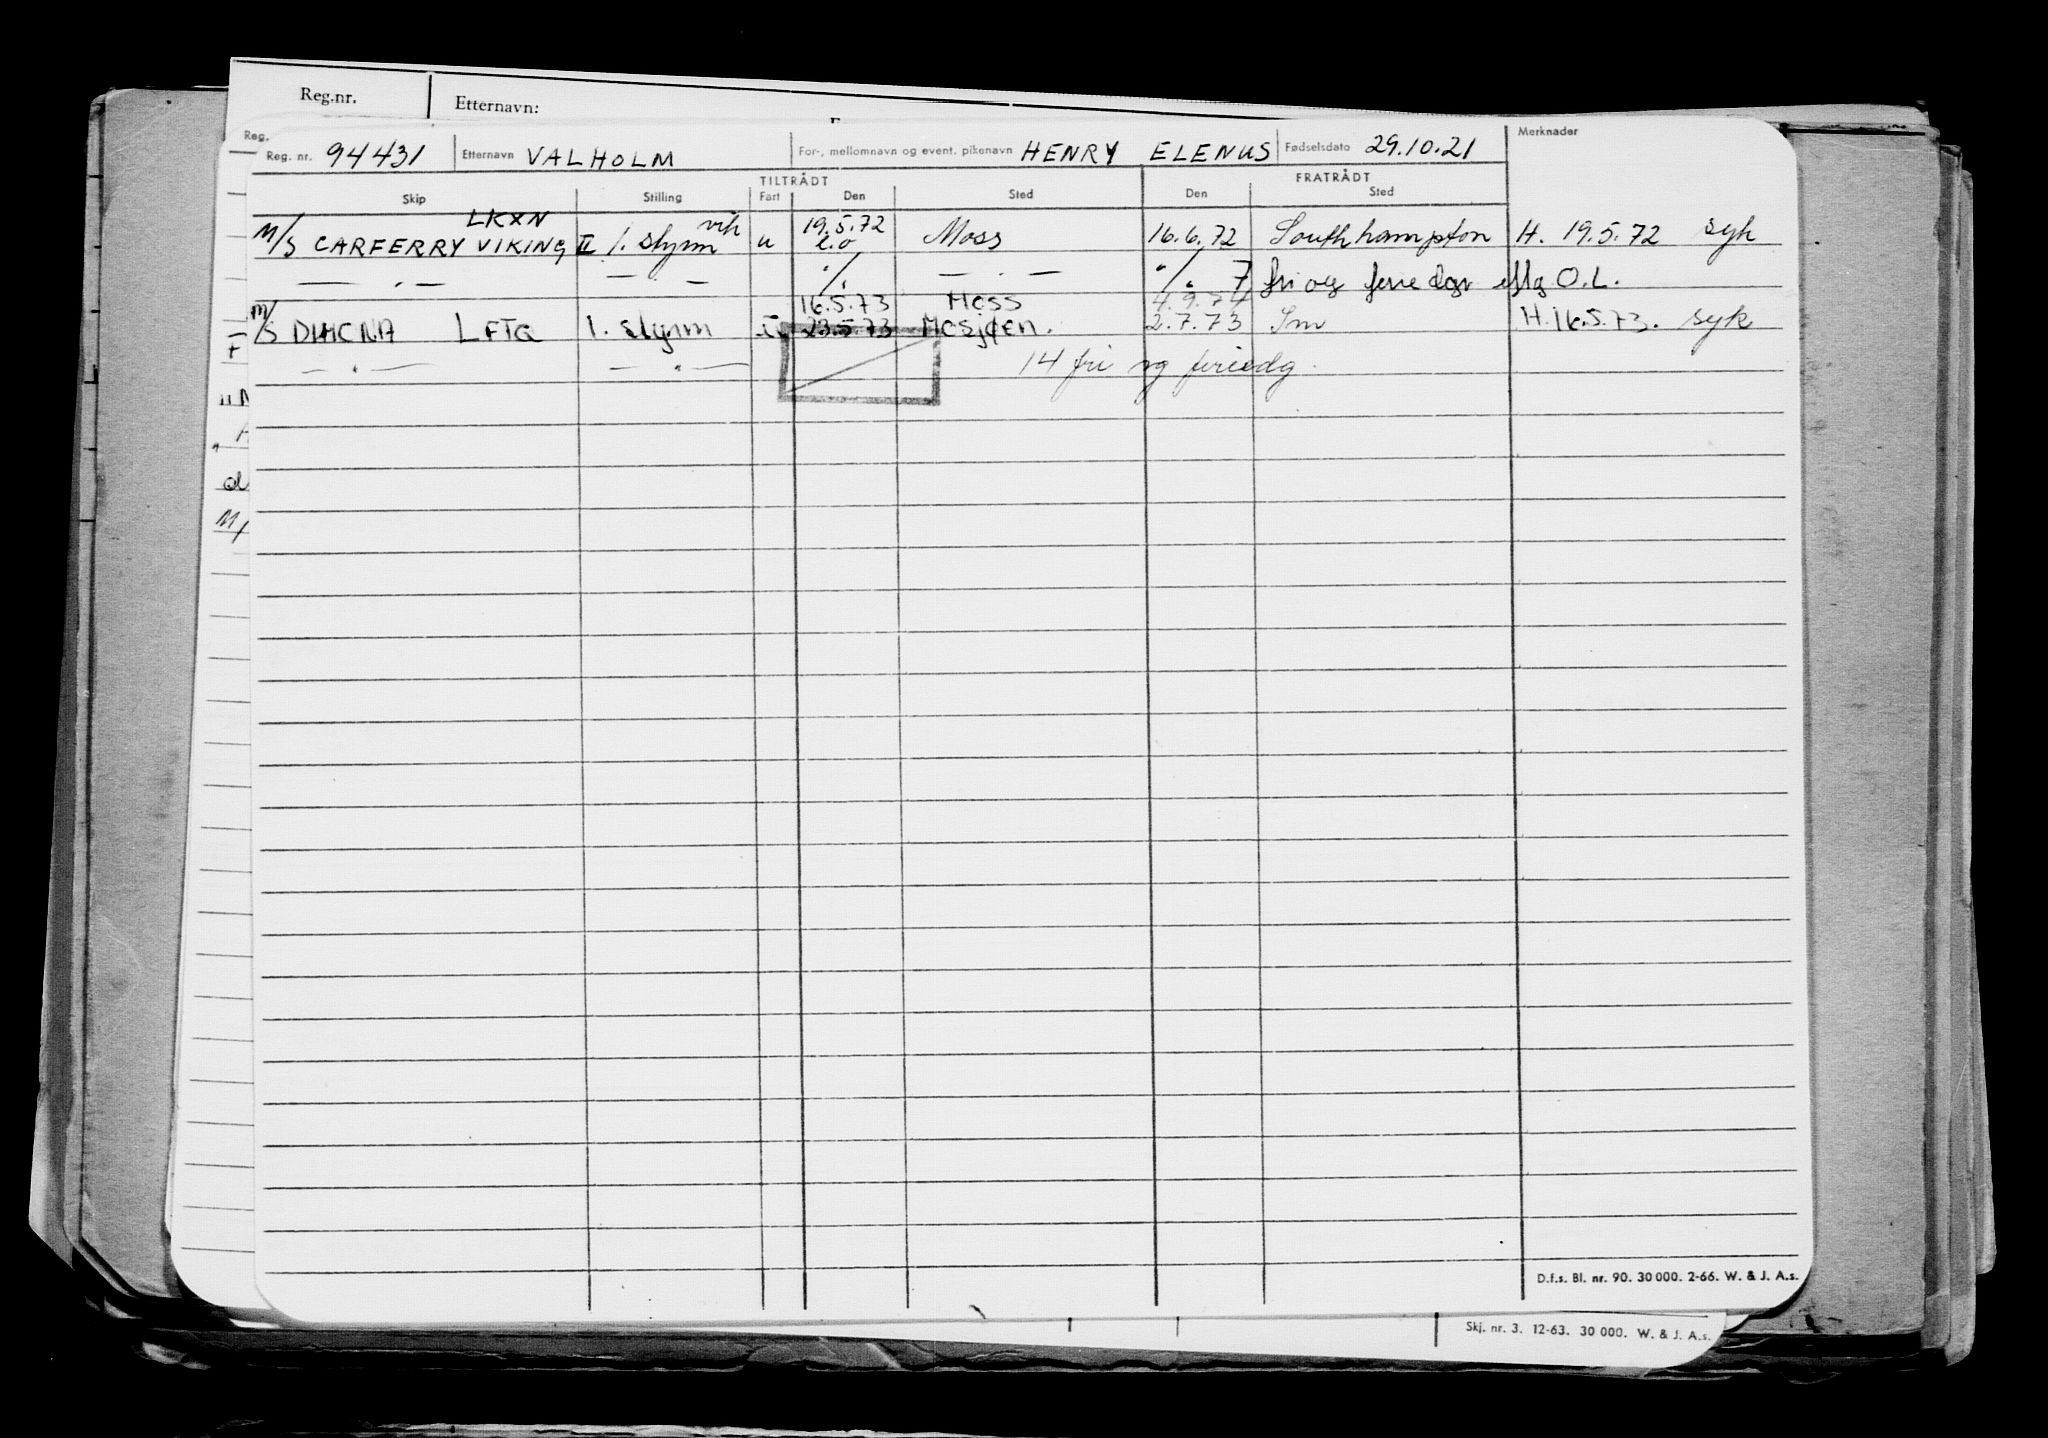 Reg.nr. Etternavn:
Reg.
Reg. nr. 94431 Etternavn VALHOLM For-, mellomnavn og event. pikenavn HENRY ELENUS Fødselsdato 29.10.21 Merknader
TILTRÅDT FRATRÅDT
Skip Stilling Fart Den Sted Den Sted
LKXN vik 19.5.72
M/S CARFERRY VIKING II 1. styrm u e.o Moss 16.6.72 Southhampton H. 19.5.72 syk
— . — — . — ./. — . — ./. 7 fri og ferie dgr eflg O.L.
16.5.73 Moss 4.9.74
M/S LFTG 1. styrm u 23.5.73 Mosjøen. 2.7.73 Sm H.16.5.73. syk
— " — — " — 14 fri og feriedg.
D.f.s. Bl. nr. 90. 30 000. 2-66. W. & J. A.s.
Skj. nr. 3. 12-63. 30 000. W. & J. A.s.